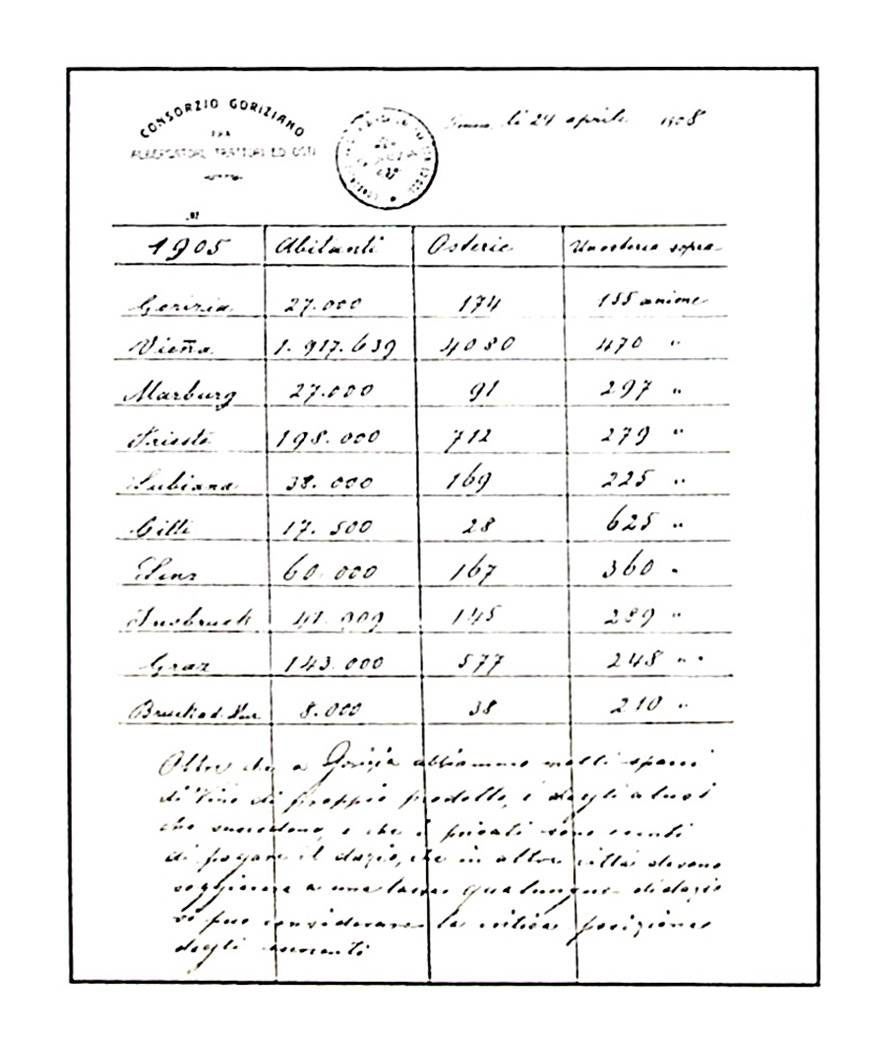 CONSORZIO GORIZIANO
FRA
ALBERGATORI, TRATTORI ED OSTI
li 24 aprile 1908
1905 Abitanti Osterie Una osteria sopra
Gorizia 27.000 174 155 anime
Vieña 1.917.639 4080 470 "
Marburg 27.000 91 297 "
Trieste 198.000 712 279 "
Lubiana 38.000 169 225 "
Cilli 17.500 28 625 "
Linz 60.000 167 360 "
Insbruck 41.909 145 289 "
Graz 143.000 577 248 "
Bruck a. d. Mur 8.000 38 210 "
Oltre che a Gorizia abbiammo molti spacci
di Vino di proppio prodotto, e degli abusi
che succedono, e che i privati sono esenti
di pagare il dazio, che in altre città devono
soggiacere a una tassa qualunque di dazio
si può considerare la critica posizione
degli esercenti